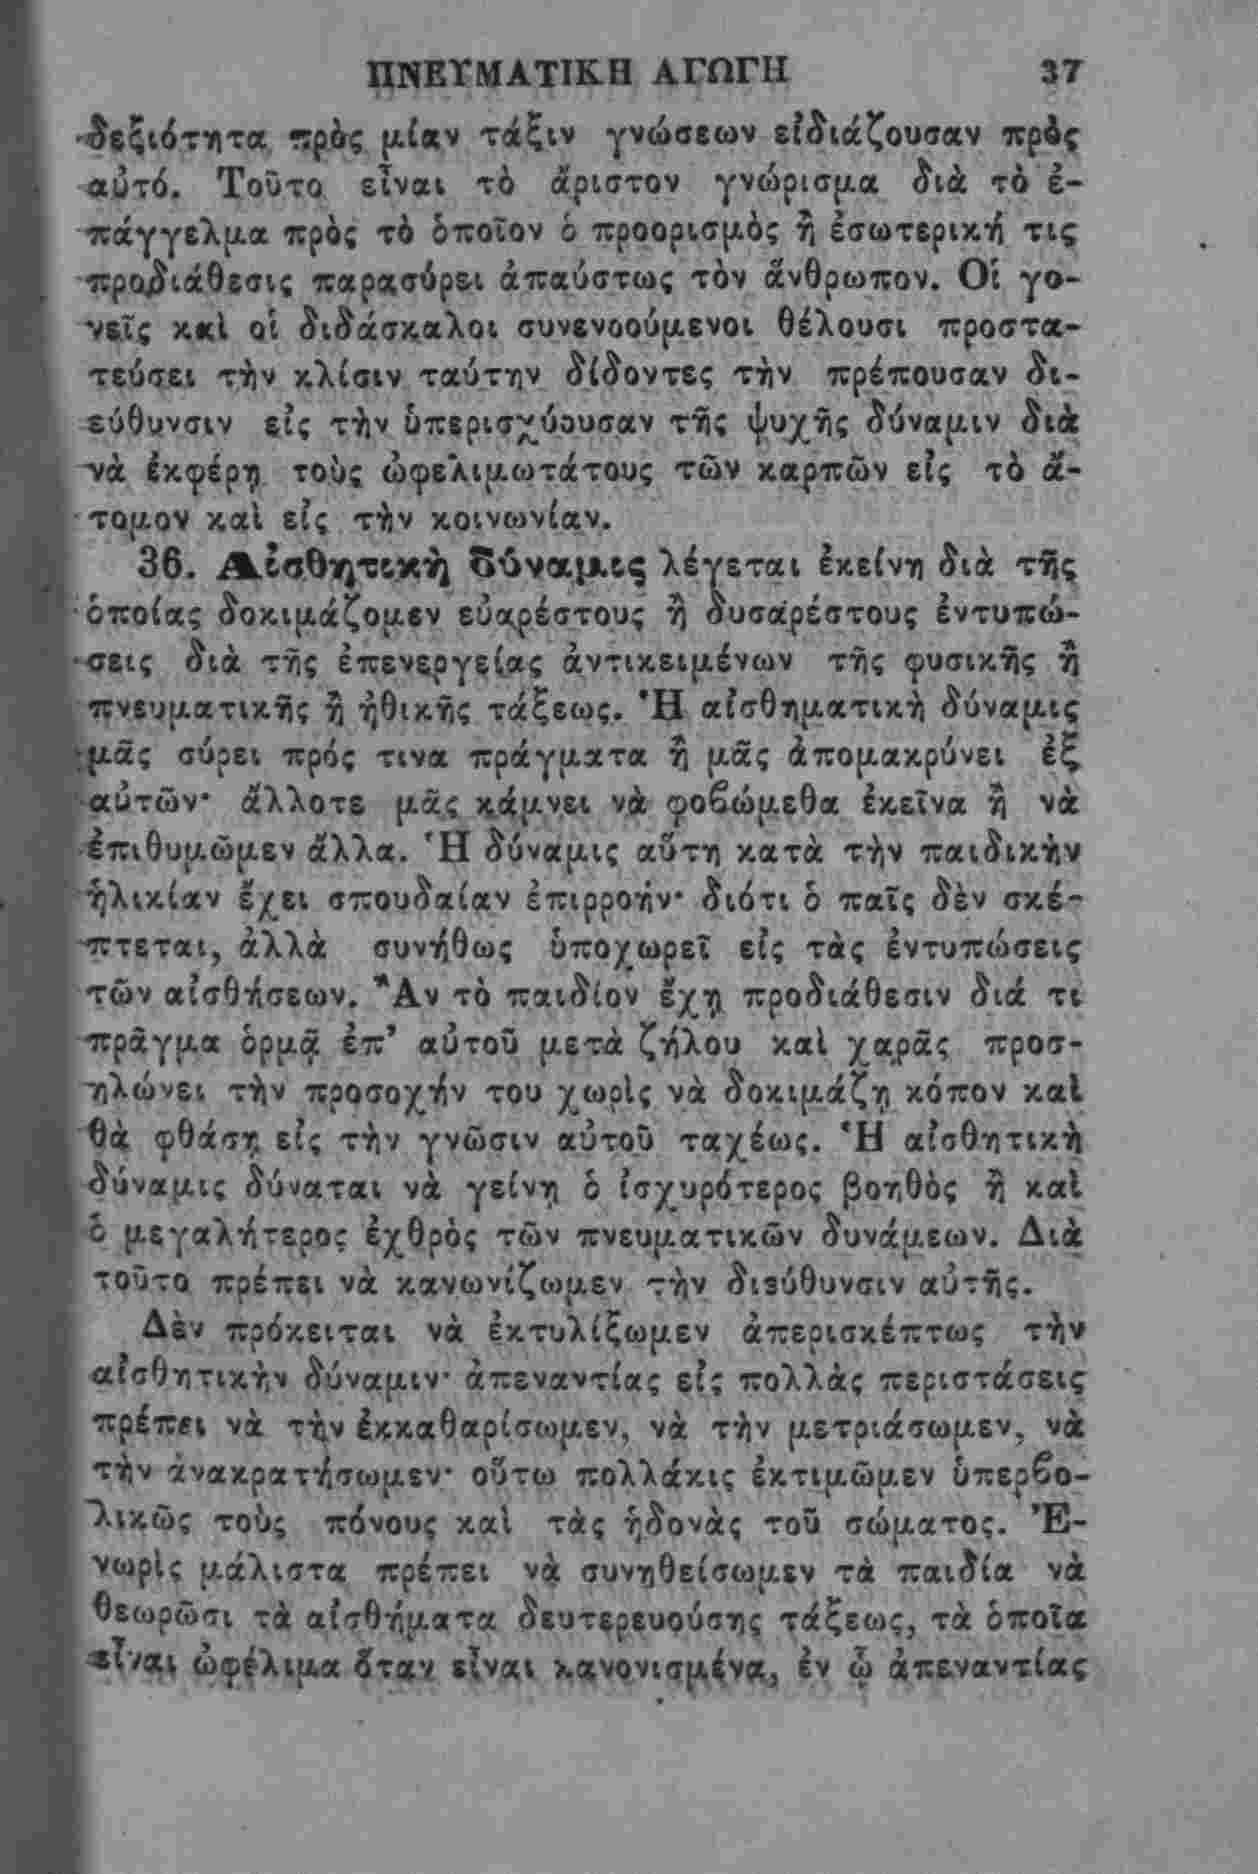 ΠΝΕΥΜΑΤΙΚΗ ΑΓΩΓΗ 37
δεξιότητα πρὸς μίαν τάξιν γνώσεων εἰδιάζουσαν πρὸς
αὐτό. Τοῦτο εἶναι τὸ ἄριστον γνώρισμα διὰ τὸ ἐ-
πάγγελμα πρὸς τὸ ὁποῖον ὁ προορισμὸς ἢ ἐσωτερική τις
προδιάθεσις παρασύρει ἀπαύστως τὸν ἄνθρωπον. Οἱ γο-
νεῖς καὶ οἱ διδάσκαλοι συνενοούμενοι θέλουσι προστα-
τεύσει τὴν κλίσιν ταύτην δίδοντες τὴν πρέπουσαν δι-
εύθυνσιν εἰς τὴν ὑπερισχύουσαν τῆς ψυχῆς δύναμιν διὰ
νὰ ἐκφέρῃ τοὺς ὠφελιμωτάτους τῶν καρπῶν εἰς τὸ ἄ-
τομον καὶ εἰς τὴν κοινωνίαν.
36. Αἰσθητικὴ δύναμις λέγεται ἐκείνη διὰ τῆς
ὁποίας δοκιμάζομεν εὐαρέστους ἢ δυσαρέστους ἐντυπώ-
σεις διὰ τῆς ἐπενεργείας ἀντικειμένων τῆς φυσικῆς ἢ
πνευματικῆς ἢ ἠθικῆς τάξεως. Ἡ αἰσθηματικὴ δύναμις
μᾶς σύρει πρός τινα πράγματα ἢ μᾶς ἀπομακρύνει ἐξ
αὐτῶν· ἄλλοτε μᾶς κάμνει νὰ φοβώμεθα ἐκεῖνα ἢ νὰ
ἐπιθυμῶμεν ἄλλα. Ἡ δύναμις αὕτη κατὰ τὴν παιδικὴν
ἡλικίαν ἔχει σπουδαίαν ἐπιρροήν· διότι ὁ παῖς δὲν σκέ-
πτεται, ἀλλὰ συνήθως ὑποχωρεῖ εἰς τὰς ἐντυπώσεις
τῶν αἰσθήσεων. Ἂν τὸ παιδίον ἔχῃ προδιάθεσιν διά τι
πρᾶγμα ὁρμᾷ ἐπ' αὐτοῦ μετὰ ζήλου καὶ χαρᾶς προσ-
ηλώνει τὴν προσοχήν του χωρὶς νὰ δοκιμάζῃ κόπον καὶ
θὰ φθάσῃ εἰς τὴν γνῶσιν αὐτοῦ ταχέως. Ἡ αἰσθητικὴ
δύναμις δύναται νὰ γείνῃ ὁ ἰσχυρότερος βοηθὸς ἢ καὶ
ὁ μεγαλήτερος ἐχθρὸς τῶν πνευματικῶν δυνάμεων. Διὰ
τοῦτο πρέπει νὰ κανωνίζωμεν τὴν διεύθυνσιν αὐτῆς.
Δὲν πρόκειται νὰ ἐκτυλίξωμεν ἀπερισκέπτως τὴν
αἰσθητικὴν δύναμιν· ἀπεναντίας εἰς πολλὰς περιστάσεις
πρέπει νὰ τὴν ἐκκαθαρίσωμεν, νὰ τὴν μετριάσωμεν, νὰ
τὴν ἀνακρατήσωμεν· οὕτω πολλάκις ἐκτιμῶμεν ὑπερβο-
λικῶς τοὺς πόνους καὶ τὰς ἡδονὰς τοῦ σώματος. Ἐ-
νωρὶς μάλιστα πρέπει νὰ συνηθείσωμεν τὰ παιδία νὰ
θεωρῶσι τὰ αἰσθήματα δευτερευούσης τάξεως, τὰ ὁποῖα
εἶναι ὠφέλιμα ὅταν εἶναι κανονισμένα, ἐν ᾧ ἀπεναντίας